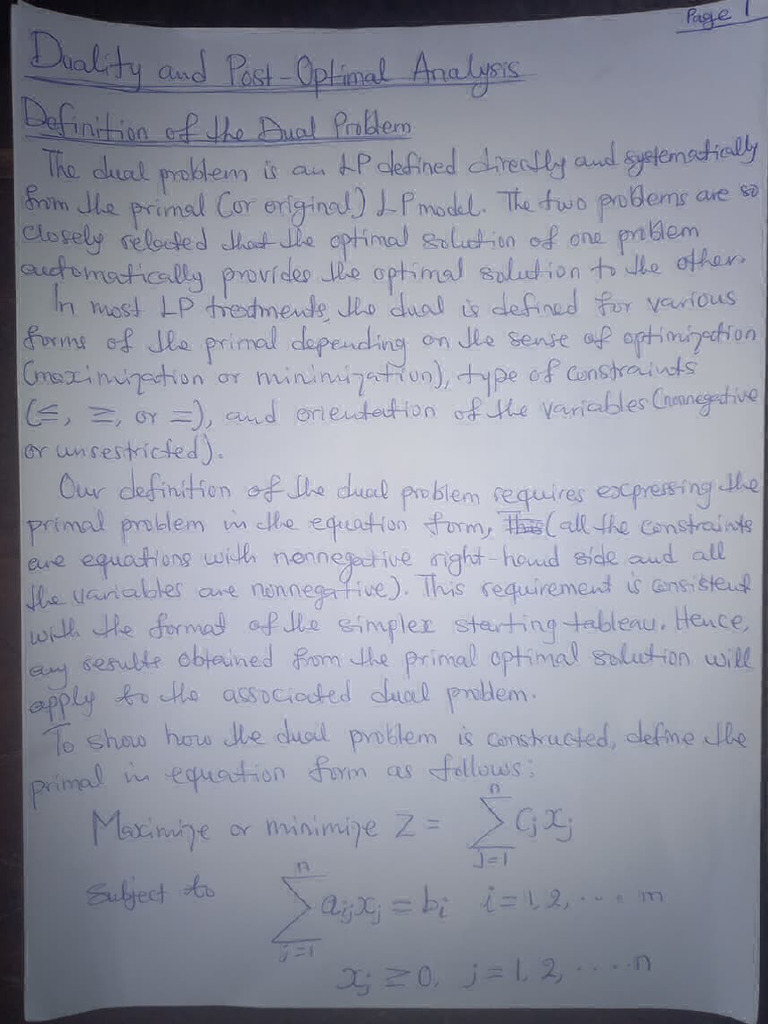 Page 1
Duality and Post-Optimal Analysis
Definition of the Dual Problem
The dual problem is an LP defined directly and systematically
from the primal (or original) LP model. The two problems are so
closely related that the optimal solution of one problem
automatically provides the optimal solution to the other.
In most LP treatments, the dual is defined for various
forms of the primal depending on the sense of optimization
(maximization or minimization), type of constraints
(≤, ≥, or =), and orientation of the variables (nonnegative
or unrestricted).
Our definition of the dual problem requires expressing the
primal problem in the equation form, (all the constraints
are equations with nonnegative right-hand side and all
the variables are nonnegative). This requirement is consistent
with the format of the simplex starting tableau. Hence,
any results obtained from the primal optimal solution will
apply to the associated dual problem.
To show how the dual problem is constructed, define the
primal in equation form as follows:
Maximize or minimize Z = ∑_{j=1}^{n} C_j x_j
Subject to ∑_{j=1}^{n} a_{ij} x_j = b_i i = 1, 2, .... m
x_j ≥ 0, j = 1, 2, ..... n